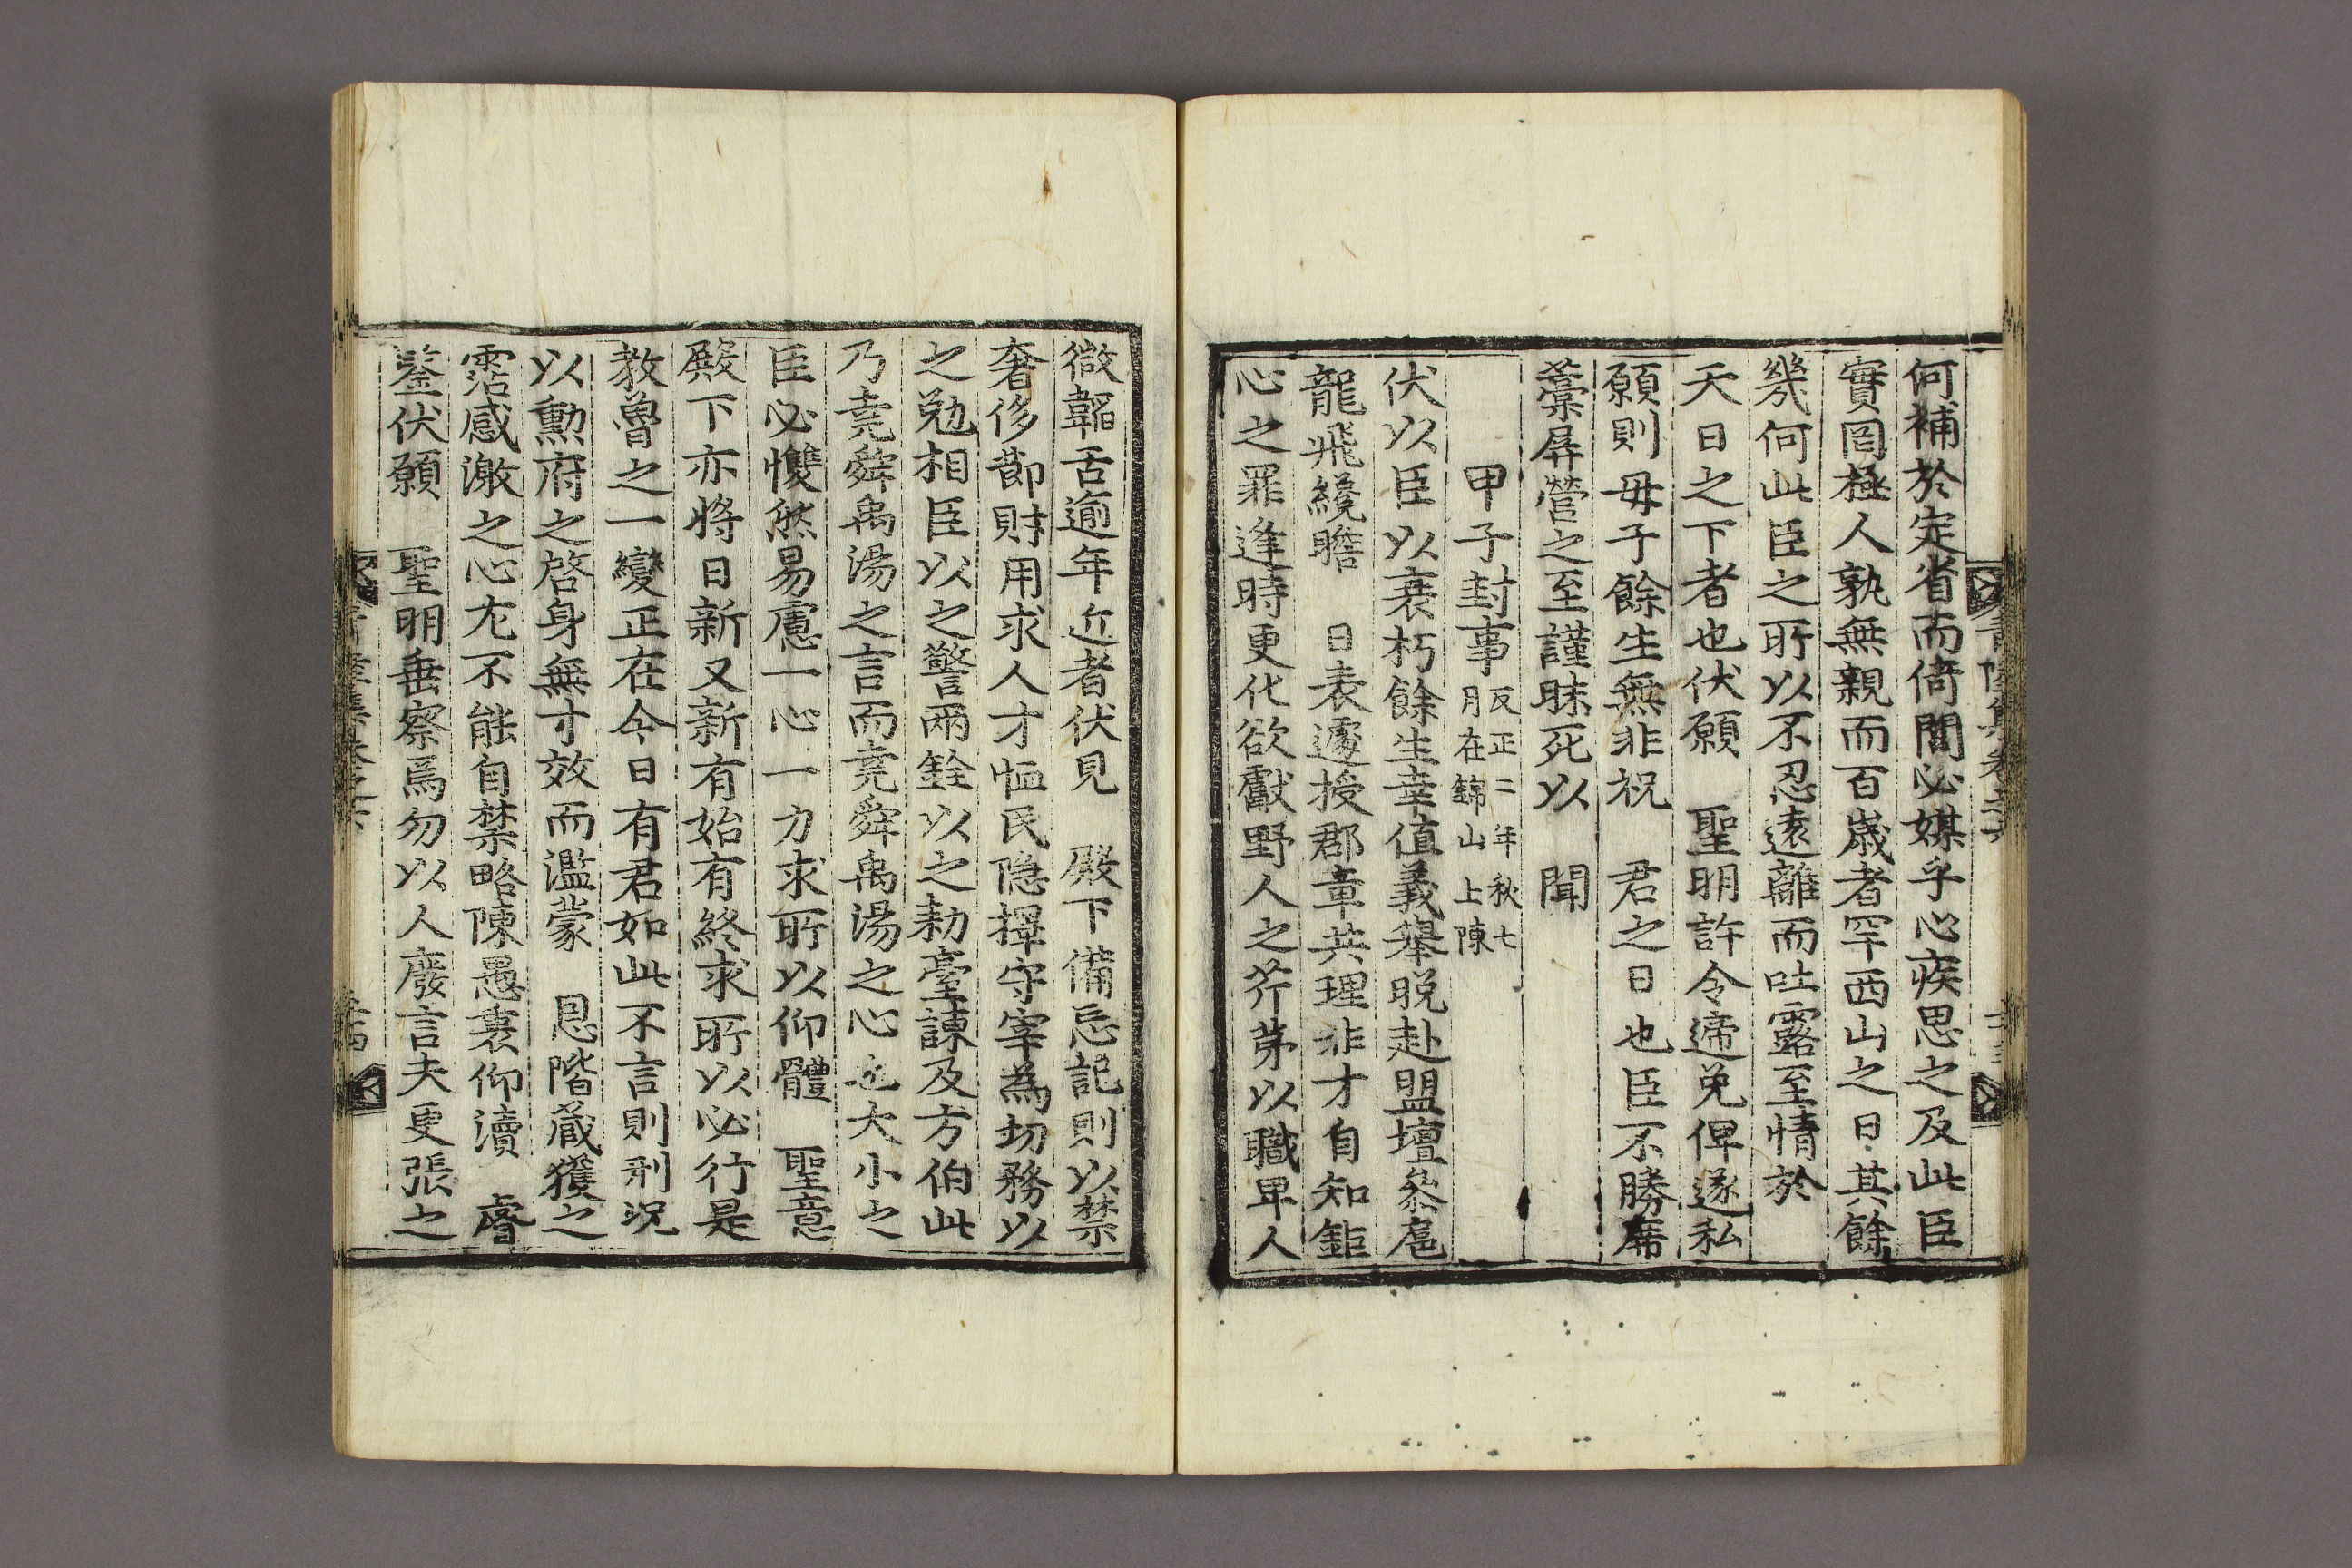 何補於定省而倚閭必媒乎心疾思之及此臣
實罔極人孰無親而百歲者罕西山之日其餘
幾何此臣之所以不忍遠離而吐露至情於
天日之下者也伏願 聖明許令遞免俾遂私
願則母子餘生無非祝 君之日也臣不勝席
藁屛營之至謹昧死以 聞
甲子封事
反正二年秋七
月在錦山上陳
伏以臣以衰朽餘生幸值義舉晩赴盟壇叅扈
龍飛纔瞻 日表遽授郡章共理非才自知鉅
心之罪逢時更化欲獻野人之芹茅以職卑人
微韜舌逾年近者伏見 殿下備忘記則以禁
奢侈節財用求人才恤民隱擇守宰為切務以
之勉相臣以之警兩銓以之勅臺諫及方伯此
乃堯舜禹湯之言而堯舜禹湯之心也大小之
臣必戄然易慮一心一力求所以仰體 聖意
殿下亦將日新又新有始有終求所以必行是
教魯之一變正在今日有君如此不言則刑況
以勳府之啓身無寸效而濫蒙 恩階葴獲之
霑感激之心尤不能自禁略陳愚衷仰瀆 睿
鉴伏願 聖明垂察焉勿以人廢言夫更張之